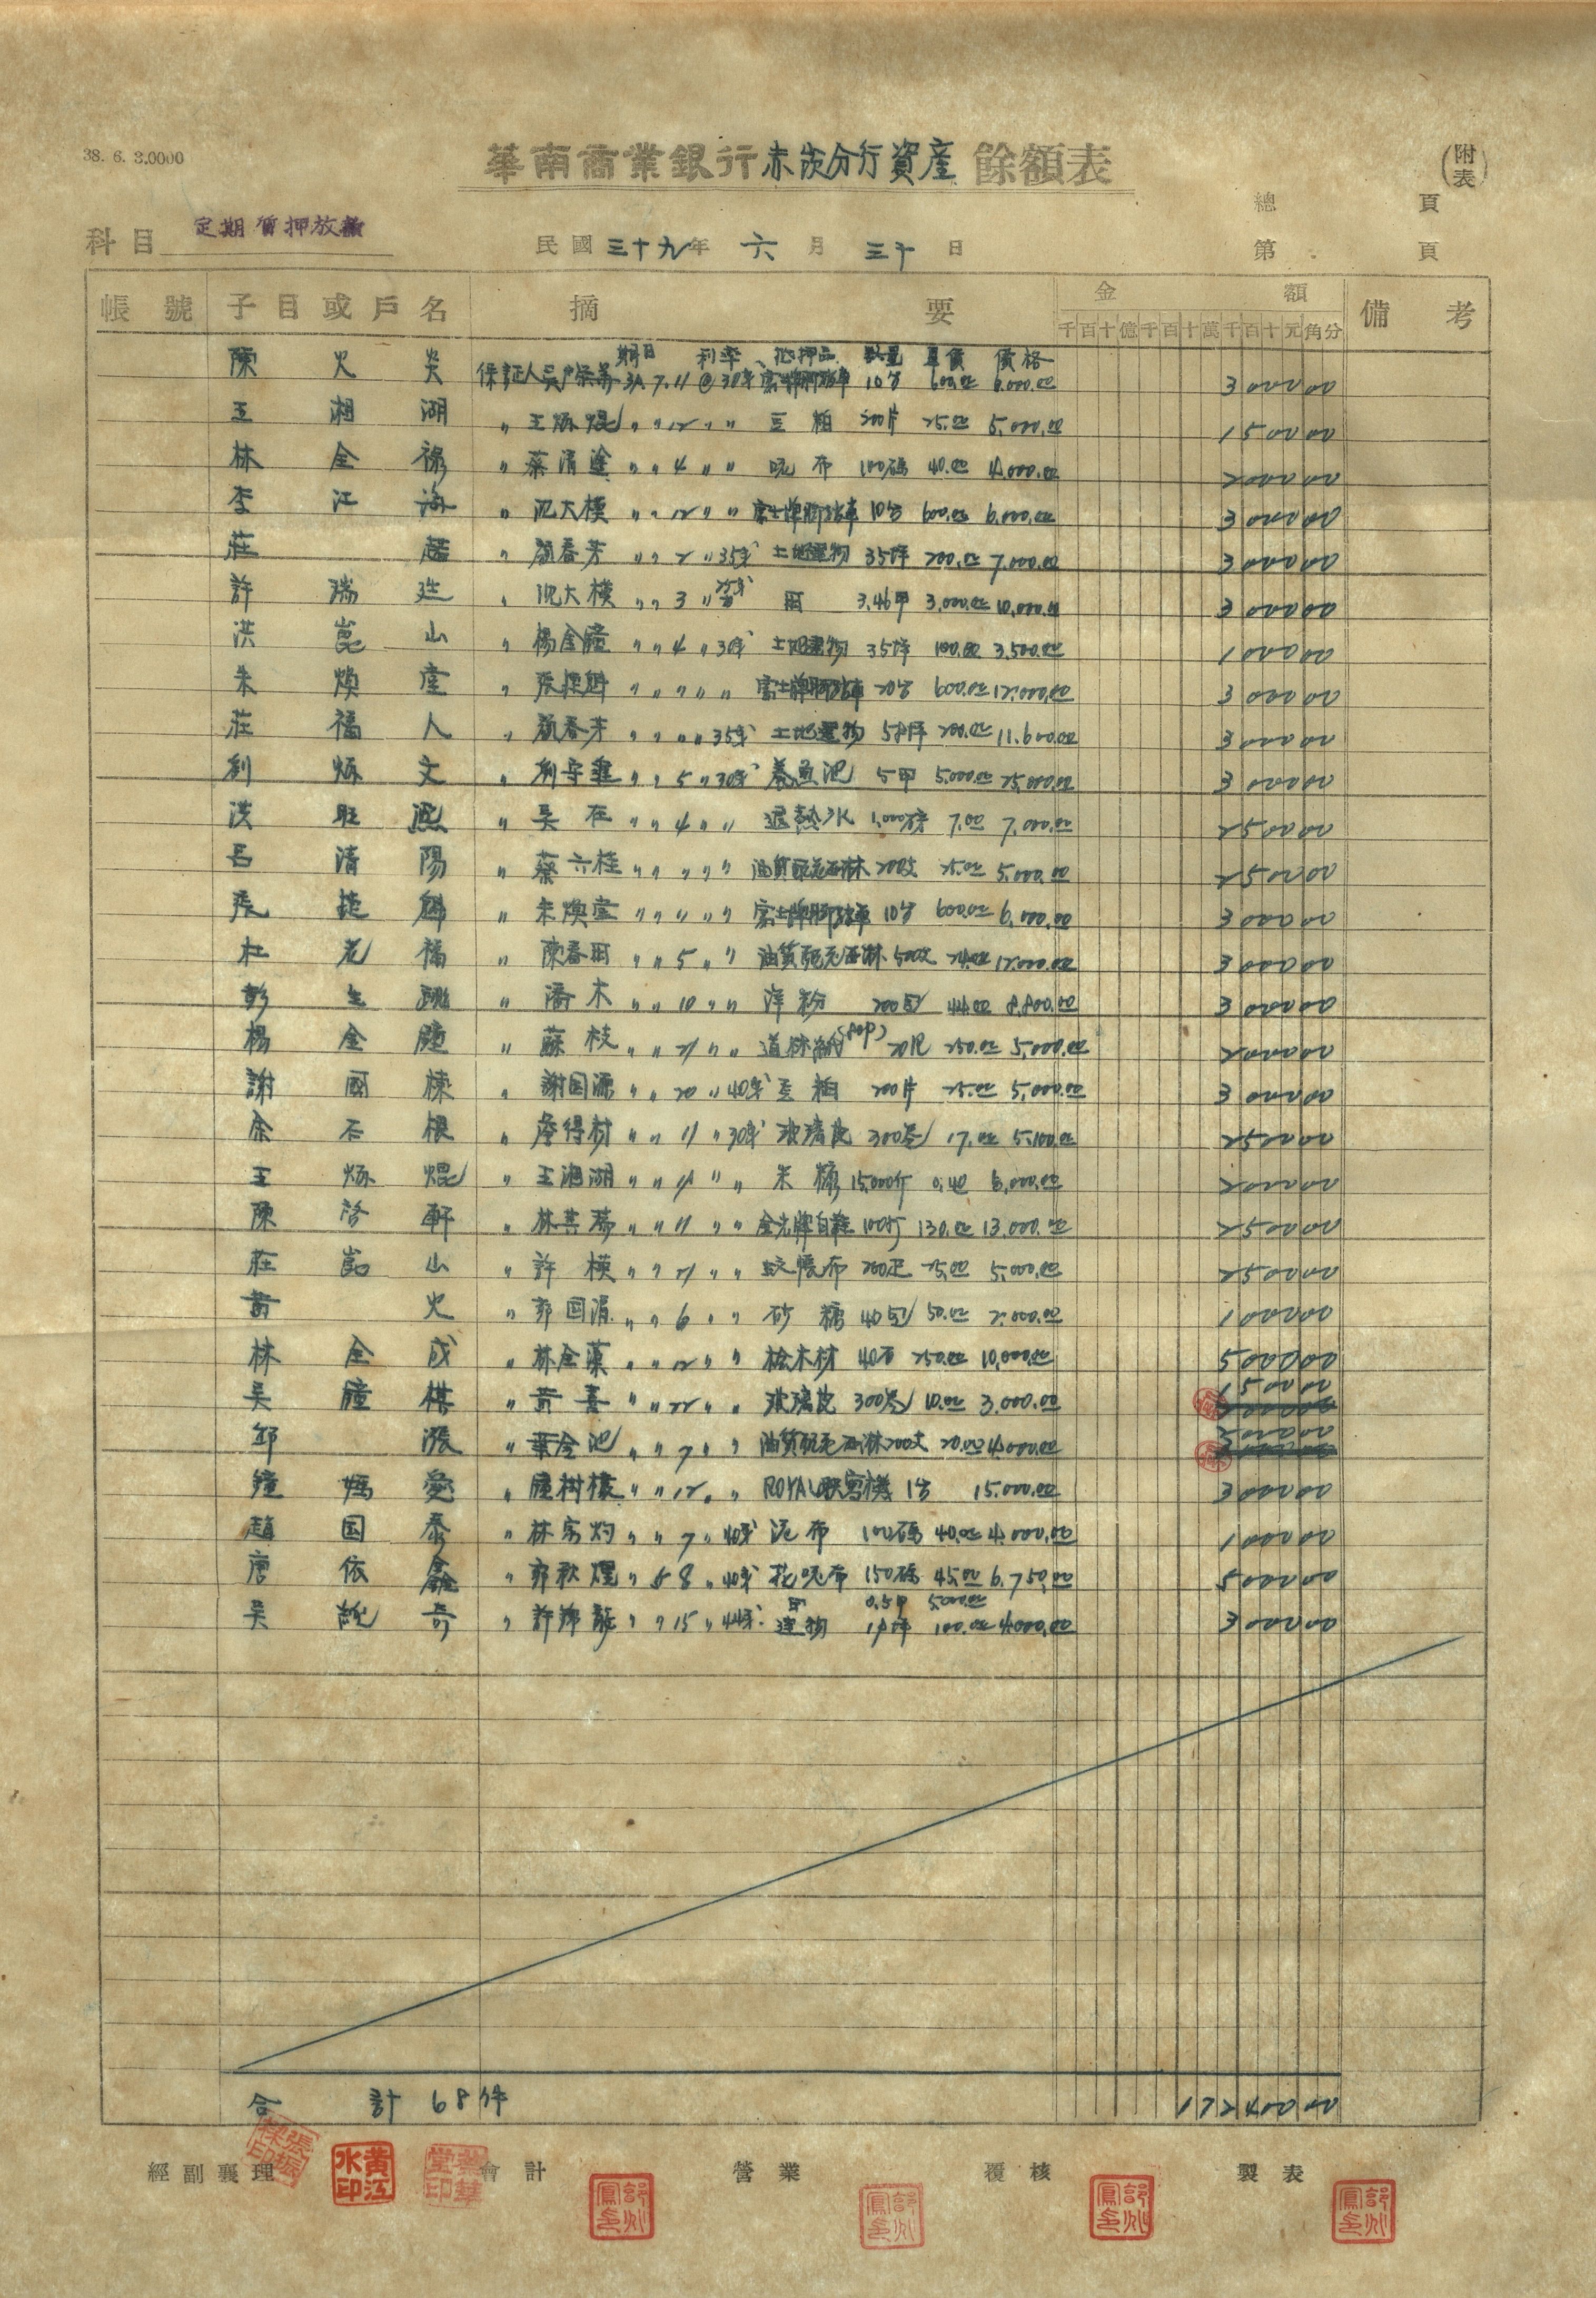 38. 6. 3.0000
華南商業銀行赤崁分行資產餘額表
(附表)
總 頁
科目 定期質押放款 民國三十九年 六 月 三十 日 第 頁
帳號 子目或戶名 摘要 金額 備考
千百十億千百十萬千百十元角分
期日 利率 抵押品 數量 單價 價格
陳火炎 保証人吳 7.11 @30% 富士牌脚踏車 10台 600.00 6,000.00 3 000 00
王湘湖 〃 王炳焜 〃 〃 12 〃 〃 豆粕 200片 25.00 5,000.00 1 500 00
林全祿 〃 蔡清塗 〃 〃 4 〃 〃 呢布 100碼 40.00 4,000.00 2000 00
李江海 〃 沈大模 〃 〃 12 〃 〃 富士牌脚踏車 10台 600.00 6,000.00 3 000 00
莊超 〃 顏春芳 〃 〃 2 〃 35% 土地建物 35坪 200.00 7,000.00 3 000 00
許瑞廷 〃 沈大模 〃 〃 3 〃 田 3.46甲 3,000.00 10,000.00 3 000 00
洪崑山 〃 楊金鐘 〃 〃 4 〃 30% 土地建物 35坪 100.00 3,500.00 1 000 00
朱煥堂 〃 張捷魁 〃 〃 〃 〃 〃 富士牌脚踏車 20台 600.00 12,000.00 3 000 00
莊福人 〃 顏春芳 〃 〃 〃 〃 35% 土地建物 58坪 200.00 11,600.00 3 000 00
劉炳文 〃 劉守 〃 〃 5 〃 30% 養魚池 5甲 5,000.00 25,000.00 3 000 00
洪旺 〃 吳在 〃 〃 4 〃 〃 退熱水 1,000 7.00 7,000.00 2500 00
呂清陽 〃 蔡六桂 〃 〃 〃 〃 〃 25.00 5,000.00 2500 00
張捷魁 〃 朱煥堂 〃 〃 〃 〃 〃 富士牌脚踏車 10台 600.00 6,000.00 3 000 00
杜老福 〃 陳春田 〃 〃 5 〃 〃 500支 24.00 12,000.00 3 000 00
彭生 〃 潘木 〃 〃 10 〃 〃 洋粉 200包 44.00 8,800.00 3 000 00
楊金鐘 〃 蘇枝 〃 〃 21 〃 〃 道林紙(80P) 20 250.00 5,000.00 2000 00
謝國棟 〃 謝國源 〃 〃 20 〃 40% 豆粕 200片 25.00 5,000.00 3 000 00
余石根 〃 得材 〃 〃 11 〃 30% 玻璃皮 300 17.00 5,100.00 2500 00
王炳焜 〃 王湘湖 〃 〃 〃 〃 米糠 15,000斤 0.40 6,000.00 2000 00
陳啓軒 〃 林其瑞 〃 〃 11 〃 〃 130.00 13,000.00 2500 00
莊崑山 〃 許模 〃 〃 21 〃 〃 蚊帳布 200疋 25.00 5,000.00 2500 00
黃火 〃 郭國 〃 〃 6 〃 〃 砂糖 40包 50.00 2,000.00 1 000 00
林金成 〃 林金藻 〃 〃 12 〃 〃 桧木材 40石 250.00 10,000.00 5 000 00
吳鐘棋 〃 黃喜 〃 〃 22 〃 〃 玻璃皮 300 10.00 3,000.00 1 500 00
邱漲 〃 葉金池 〃 〃 7 〃 〃 200支 20.00 4,000.00 2000 00
鐘媽愛 〃 鐘樹樣 〃 〃 12 〃 〃 ROYAL 1台 15,000.00 3 000 00
趙国泰 〃 林家灼 〃 〃 7 〃 40% 呢布 100碼 40.00 4,000.00 1 000 00
唐依鑫 〃 郭秋煌 〃 5 8 〃 40% 花呢布 150碼 45.00 6,750.00 5 000 00
0.5甲 5,000.00
吳奇 〃 許 〃 〃 15 〃 建物 坪 100.00 4,000.00 3 000 00
合計 68件 172400 00
經副襄理 會計 營業 覆核 製表
張振樑印 黃江水印